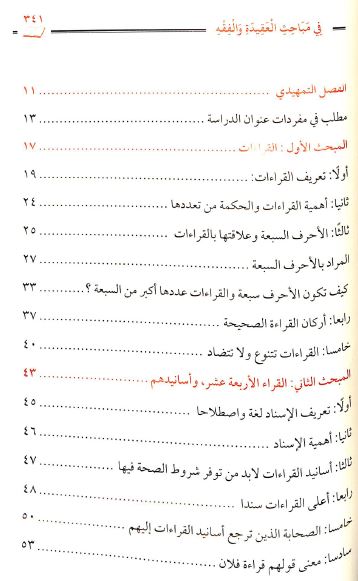 ٣٤١
في مَبَاحِثِ العَقِيدَةِ وَالْفِقْهِ
الفصل التمهيدي ........ ١١
مطلب في مفردات عنوان الدراسة ........ ١٣
المبحث الأول : القراءات ........ ١٧
أولًا: تعريف القراءات: ........ ١٩
ثانيا: أهمية القراءات والحكمة من تعددها ........ ٢٤
ثالثًا: الأحرف السبعة وعلاقتها بالقراءات ........ ٢٥
المراد بالأحرف السبعة ........ ٢٧
كيف تكون الأحرف سبعة والقراءات عددها أكبر من السبعة ؟ ........ ٣٣
رابعا: أركان القراءة الصحيحة ........ ٣٧
خامسا: القراءات تتنوع ولا تتضاد ........ ٤٠
المبحث الثاني: القراء الأربعة عشر، وأسانيدهم ........ ٤٣
أولًا: تعريف الإسناد لغة واصطلاحا ........ ٤٥
ثانيا: أهمية الإسناد ........ ٤٦
ثالثا: أسانيد القراءات لابد من توفر شروط الصحة فيها ........ ٤٧
رابعا: أعلى القراءات سندا ........ ٤٨
خامسا: الصحابة الذين ترجع أسانيد القراءات إليهم ........ ٥٠
سادسا: معنى قولهم قراءة فلان ........ ٥٣